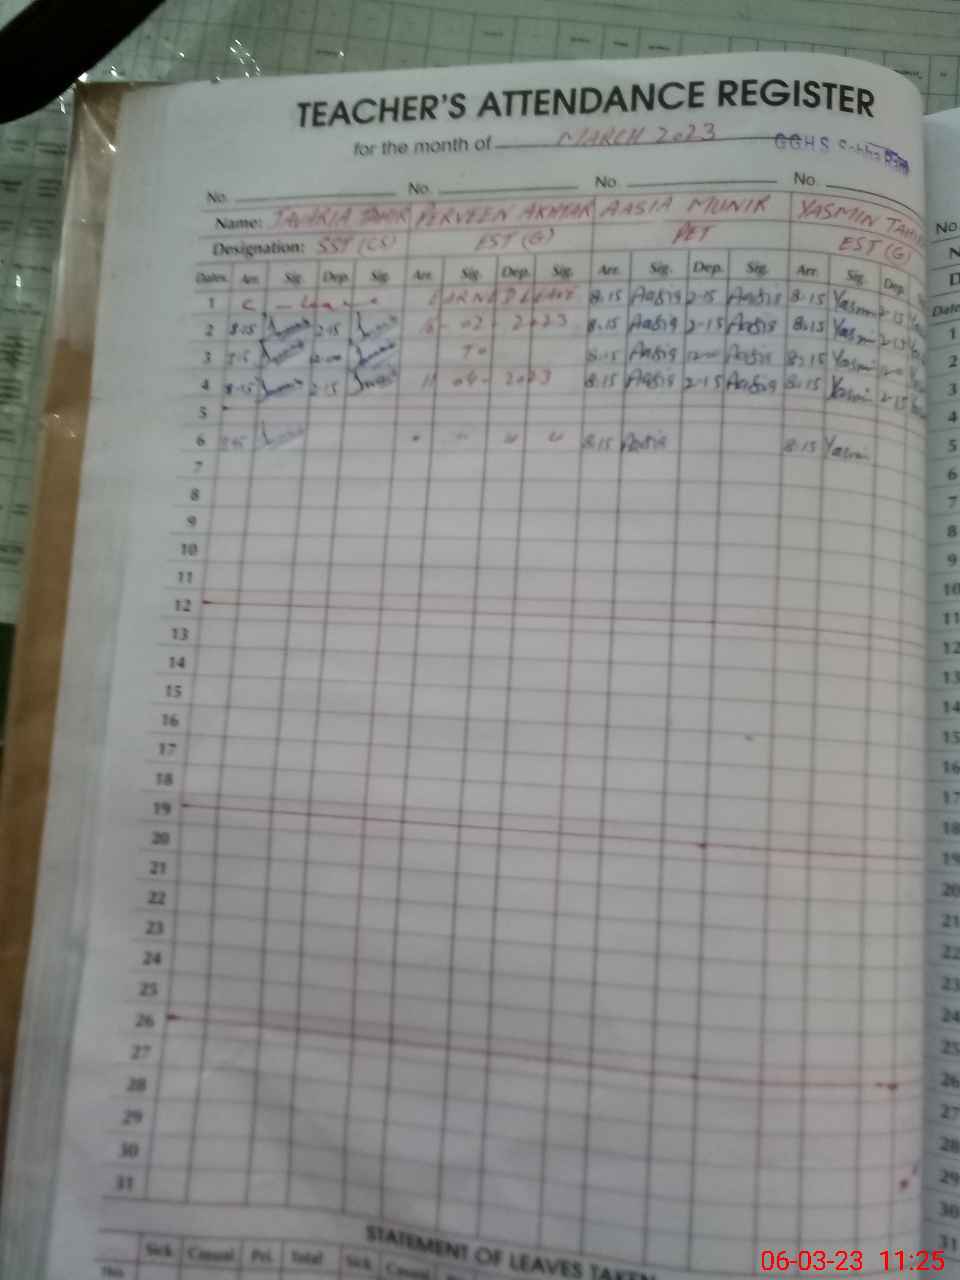 TEACHER'S ATTENDANCE REGISTER
for the month of MARCH 2023 GGHS
No. No. No. No.
Name: TAHIR PERVEEN AKHTAR AASIA MUNIR YASMIN
Designation: SST (CS) EST (G) PET EST (G)
Dates Arr. Sig. Dep. Sig. Arr. Sig. Dep. Sig. Arr. Sig. Dep. Sig. Arr. Sig. Dep.
1 C - Leave EARNED LEAVE 8.15 Aasia 2-15 Aasia 8.15 Yasmin 2-15
2 8.15 2-15 02 - 2023 8.15 Aasia 2-15 Aasia 8.15 Yasmin 2-15
3 To 8.15 Aasia 12-00 Aasia 8.15 Yasmin
4 8.15 2-15 11 04 - 2023 8.15 Aasia 2-15 Aasia 8.15 Yasmin 2-15
5
6 " " " " 8.15 Aasia 8.15 Yasmin
7
8
9
10
11
12
13
14
15
16
17
18
19
20
21
22
23
24
25
26
27
28
29
30
31
STATEMENT OF LEAVES TAKEN
Sick Casual Pri. Total Sick Casual
No
Dates
1
2
3
4
5
6
7
8
9
10
11
12
13
14
15
16
17
18
19
20
21
22
23
24
25
26
27
28
29
30
31
06-03-23 11:25